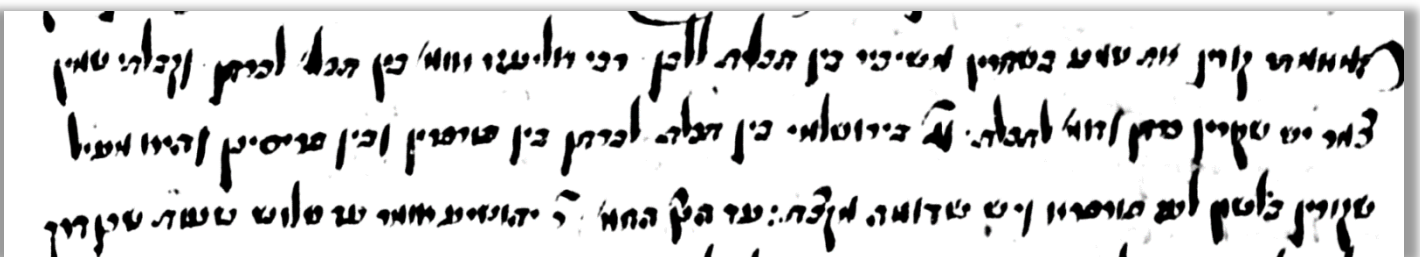 מאימתי קורין את שמע בשחרין משיכיר בין תכלת ללבן רבי אליעזר אומ' בין תכל' לכרתן וקבלתי שמין
צמר יש שקורין ודומ' לתכלת. בירושלמי בין תכלת לכרתן בין פורפרין ובין פריסינן והיינו מעיל
שקורין בלשון לעז ויש שדומה מקצת: עד הנץ החמ' ר' יהושיע אומר עד שלוש שעות שכן דרך